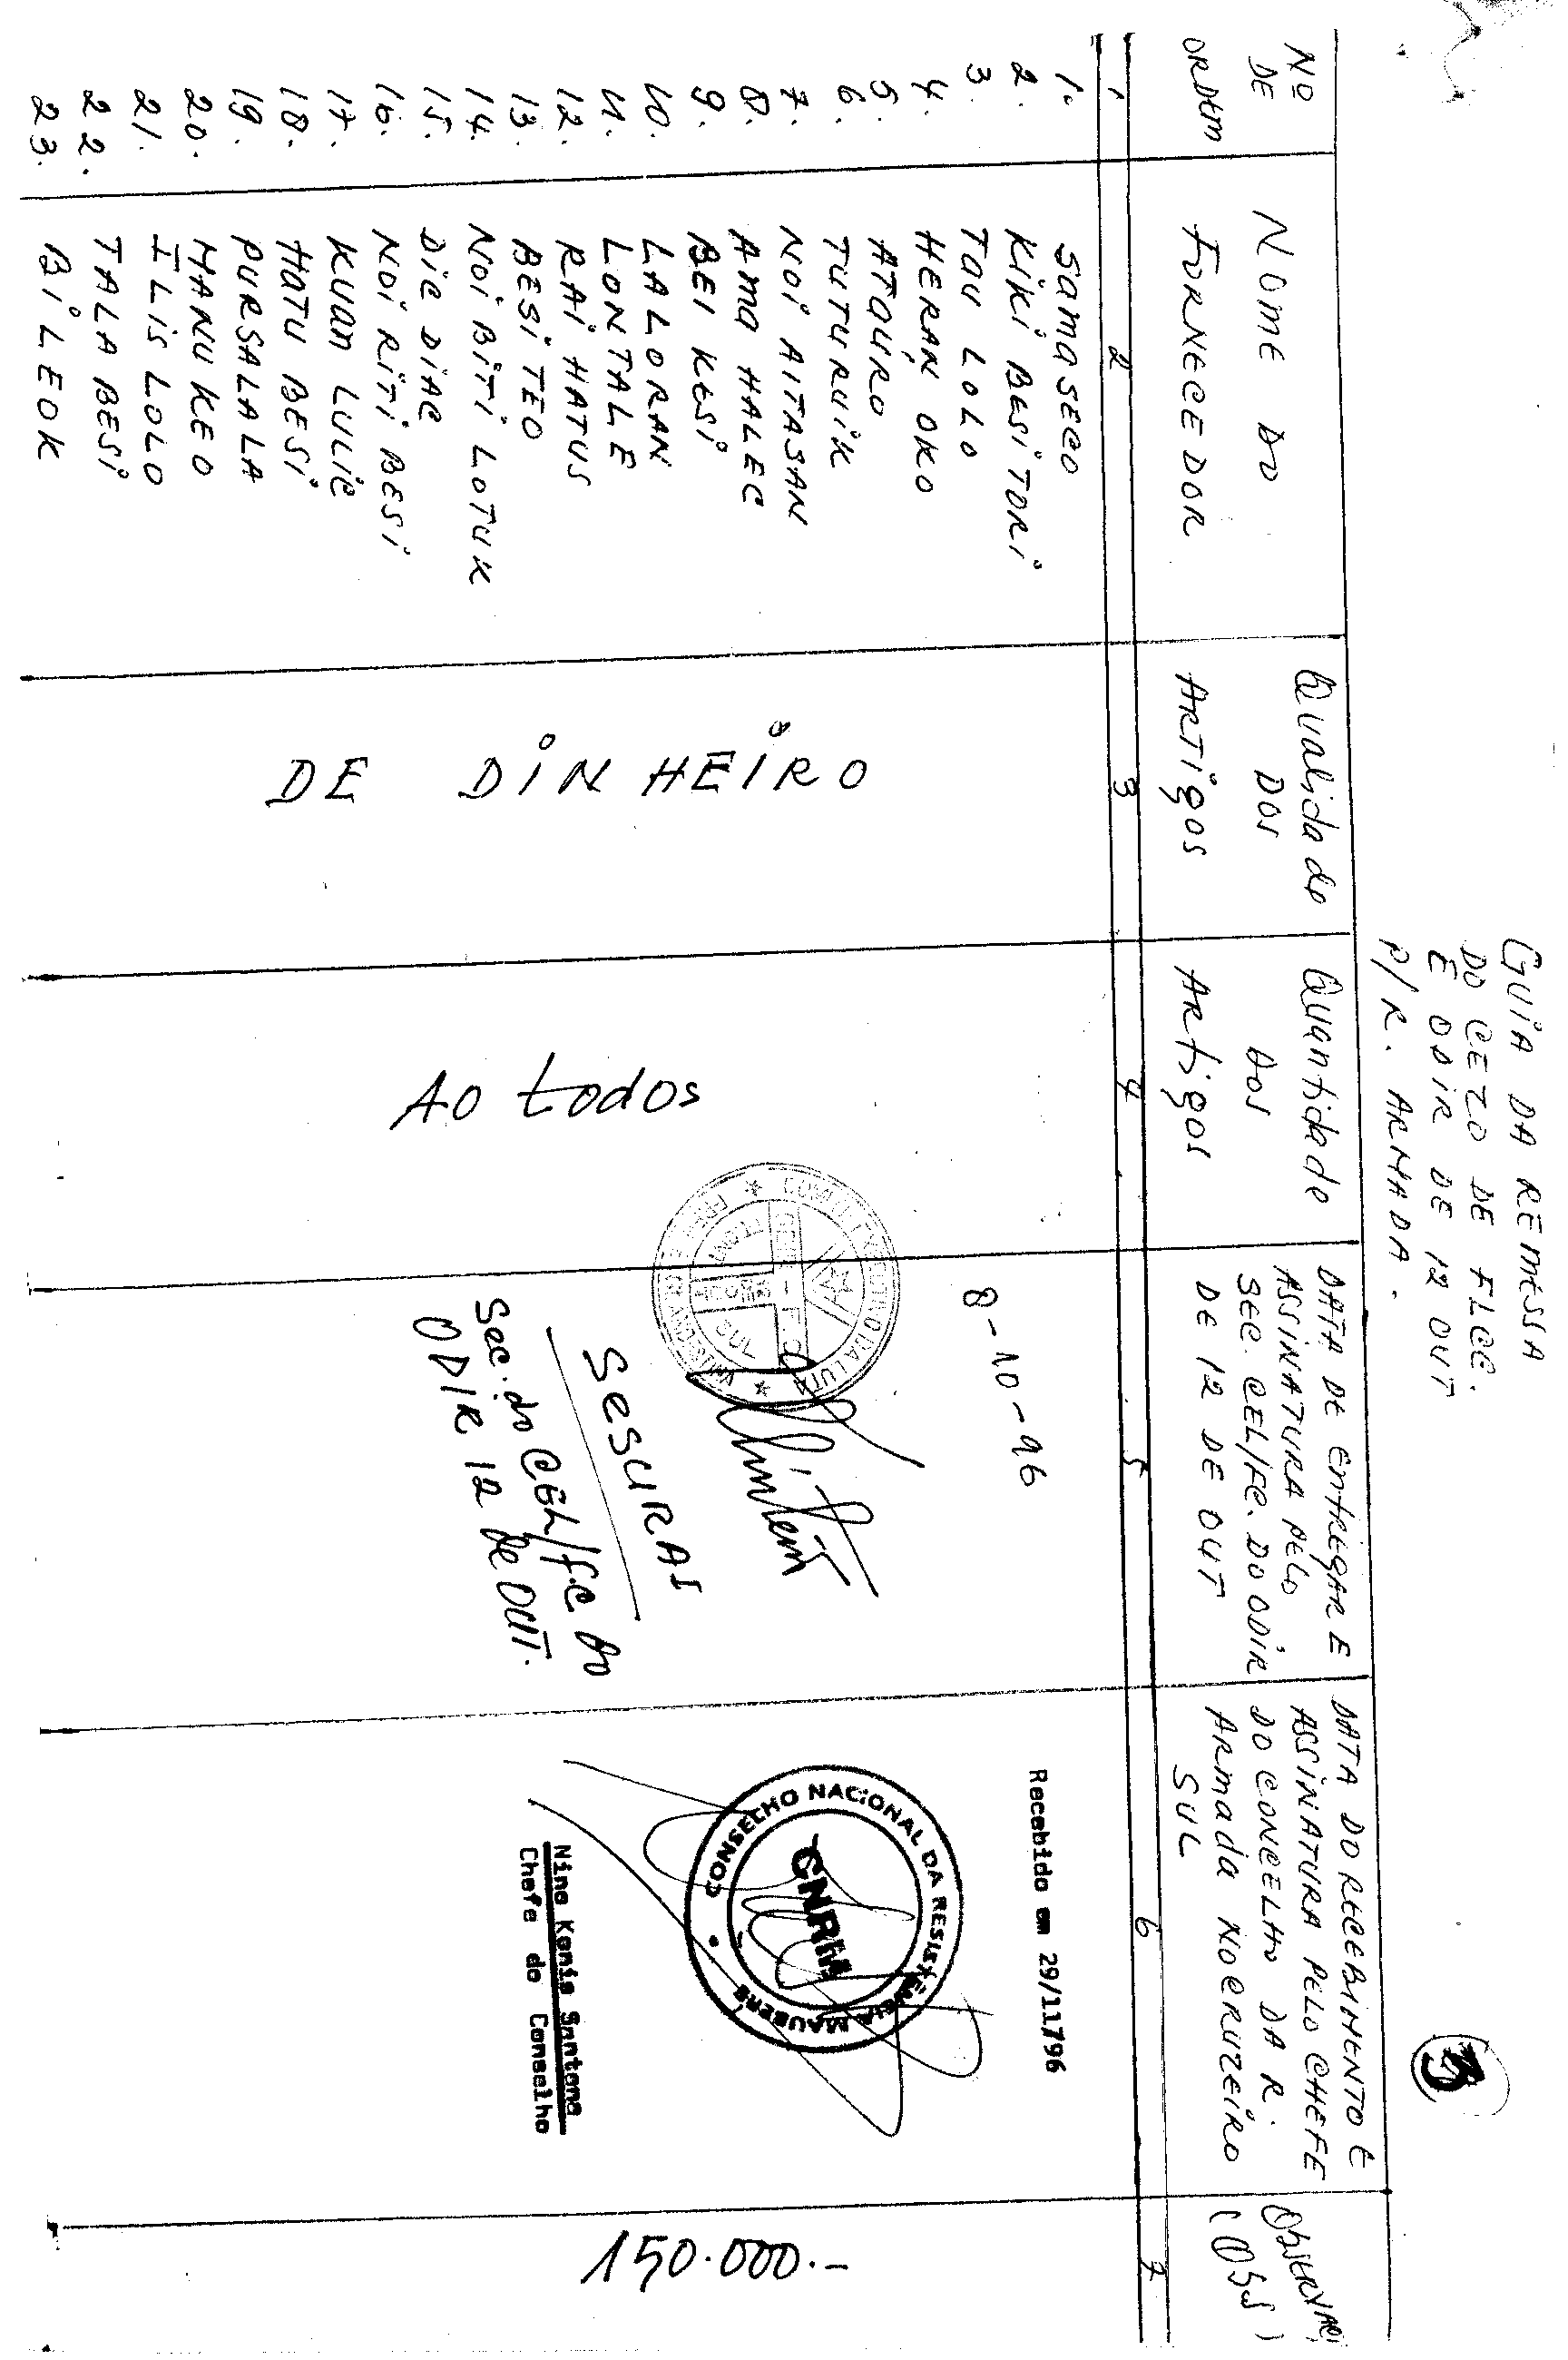 GUIA DA REMESSA
DO CEZO DE FLEC.
E ODIR DE 12 OUT
P/R. ARMADA.
3
Nº DE ORDEM
NOME DO FORNECEDOR
Qualidade DOS ARTigos
Quantidade DOS ARTigos
DATA DE ENTREGAR E ASSINATURA PELO SEC. CEL/FC. DO ODIR DE 12 DE OUT
DATA DO RECEBIMENTO E ASSINATURA PELO CHEFE DO CONCELHO DA R. ARMADA NO CRUZEIRO SUL
(OBS)
1 2 3 4 5 6 7
1. SAMASECO
2. KIKI BESI TORI
3. TAU LOLO
4. HERAN OKO
5. ATAURO
6. TUTURUIK
7. NOI AITASAN
8. AMA HALEC
9. BEI KESI
10. LALORAN
11. LONTALE
12. RAI HATUS
13. BESI TEO
14. NOI BITI LOTUK
15. DIC DIAC
16. NOI RITI BESI
17. KUAN LULIC
18. HATU BESI
19. PURSALALA
20. MANU KEO
21. ILIS LOLO
22. TALA BESI
23. BILEOK
DE DINHEIRO
AO todos
8-10-96
SESURAI
Sec. do CEL/F.C do
ODIR 12 de OUT.
Recebido em 29/11/96
CONSELHO NACIONAL DA RESISTÊNCIA MAUBERE
CNRM
Nino Konis Santana
Chefe do Conselho
150.000.-